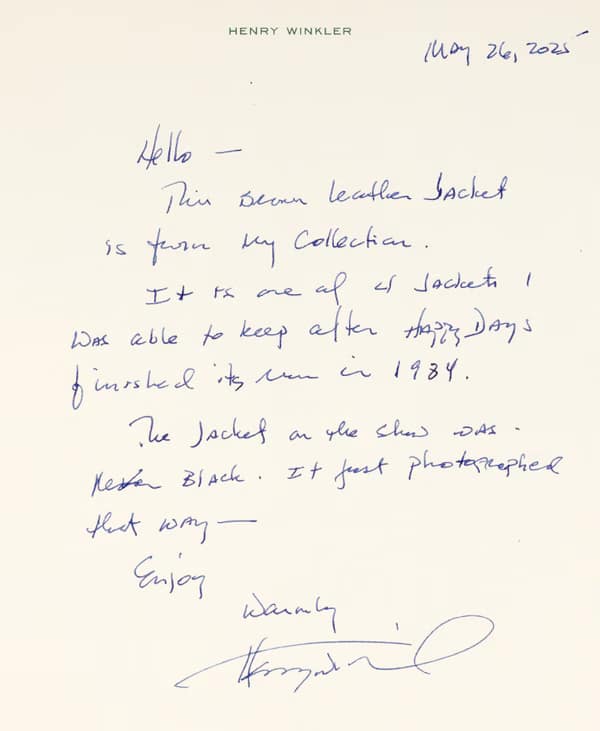 HENRY WINKLER
May 26, 2025
Hello —
This Brown leather Jacket
is from my Collection.
It is one of 4 Jackets I
was able to keep after Happy Days
finished its run in 1984.
The Jacket on the show was
Never Black. It just photographed
that way —
Enjoy
Warmly
Henry Winkler